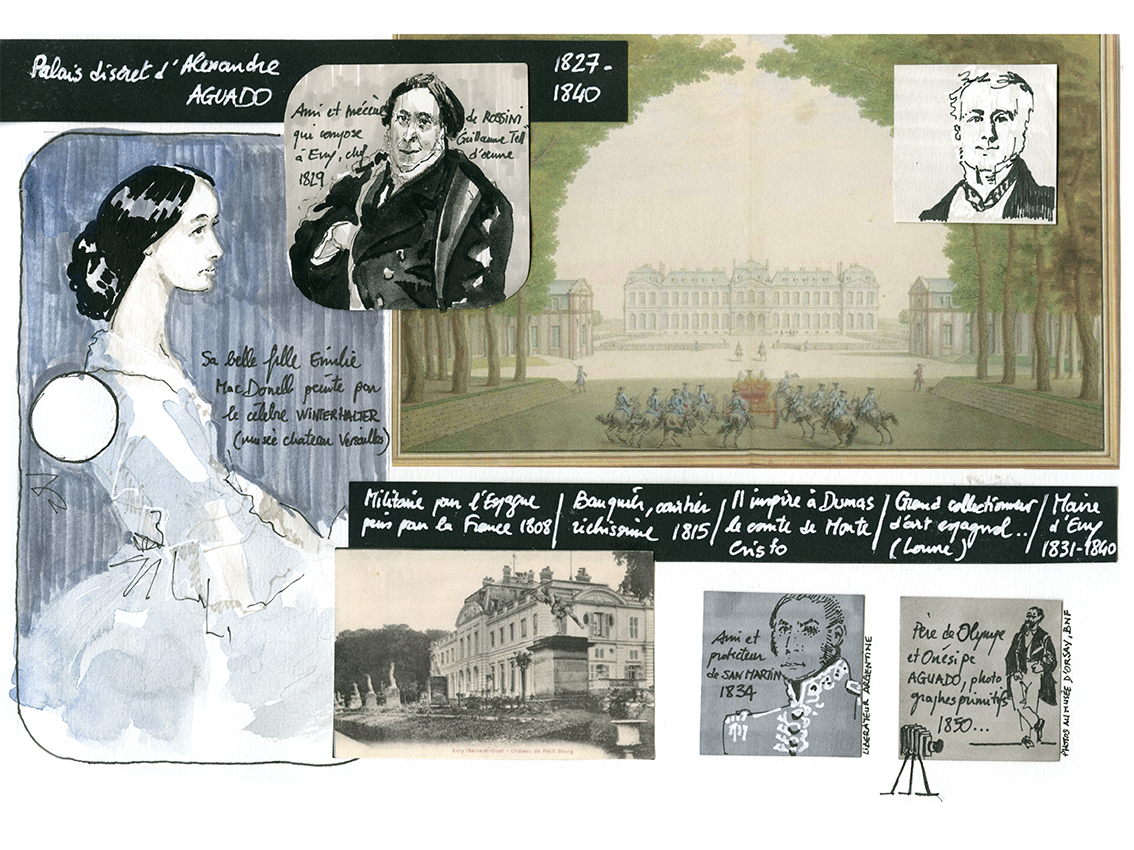 Palais discret d'Alexandre
AGUADO
1827-
1840
Ami et mécène
qui compose
à Evry, chef
1829
de ROSSINI
Guillaume Tell
d'œuvre
Sa belle fille Emilie
MacDonell peinte par
le célèbre WINTERHALTER
(musée chateau Versailles)
Militaire pour l'Espagne
puis pour la France 1808
Banquier, courtier
richissime 1815
Il inspire à Dumas
le comte de Monte
Cristo
Grand collectionneur
d'art espagnol..
(Louvre)
Maire
d'Evry
1831-1840
Evry (Seine-et-Oise) - Château de Petit Bourg
Ami et
protecteur
de SAN MARTIN
1834
LIBERATEUR ARGENTINE
Père de Olympe
et Onésipe
AGUADO, photo
graphes primitifs
1850...
PHOTOS AU MUSÉE D'ORSAY, BNF